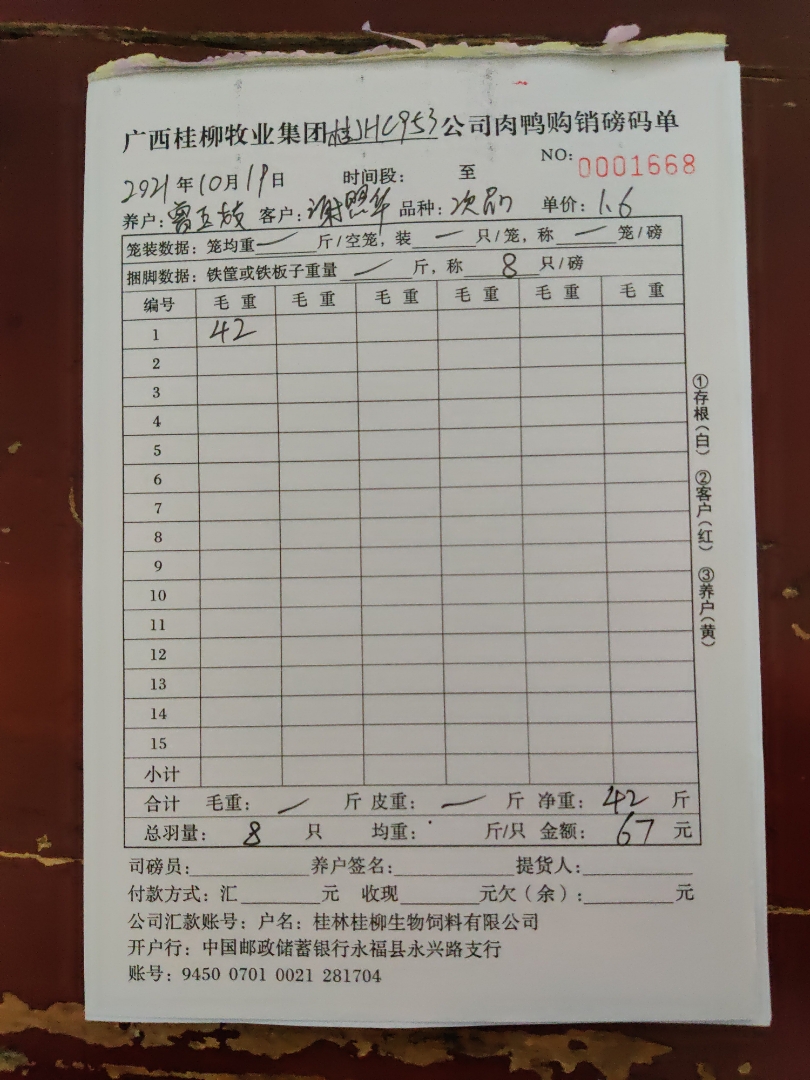 广西桂柳牧业集团桂JHC953公司肉鸭购销磅码单
NO: 0001668
2021年10月19日 时间段: 至
养户: 客户:谢 品种:次品 单价:1.6
笼装数据:笼均重 — 斤/空笼,装 — 只/笼,称 — 笼/磅
捆脚数据:铁筐或铁板子重量 — 斤,称 8 只/磅
编号 毛重 毛重 毛重 毛重 毛重 毛重
1 42
2
3
4
5
6
7
8
9
10
11
12
13
14
15
小计
合计 毛重: — 斤 皮重: — 斤 净重: 42 斤
总羽量: 8 只 均重: 斤/只 金额: 67 元
司磅员: 养户签名: 提货人:
付款方式:汇 元 收现 元欠(余): 元
公司汇款账号:户名:桂林桂柳生物饲料有限公司
开户行:中国邮政储蓄银行永福县永兴路支行
账号:9450 0701 0021 281704
①存根(白) ②客户(红) ③养户(黄)